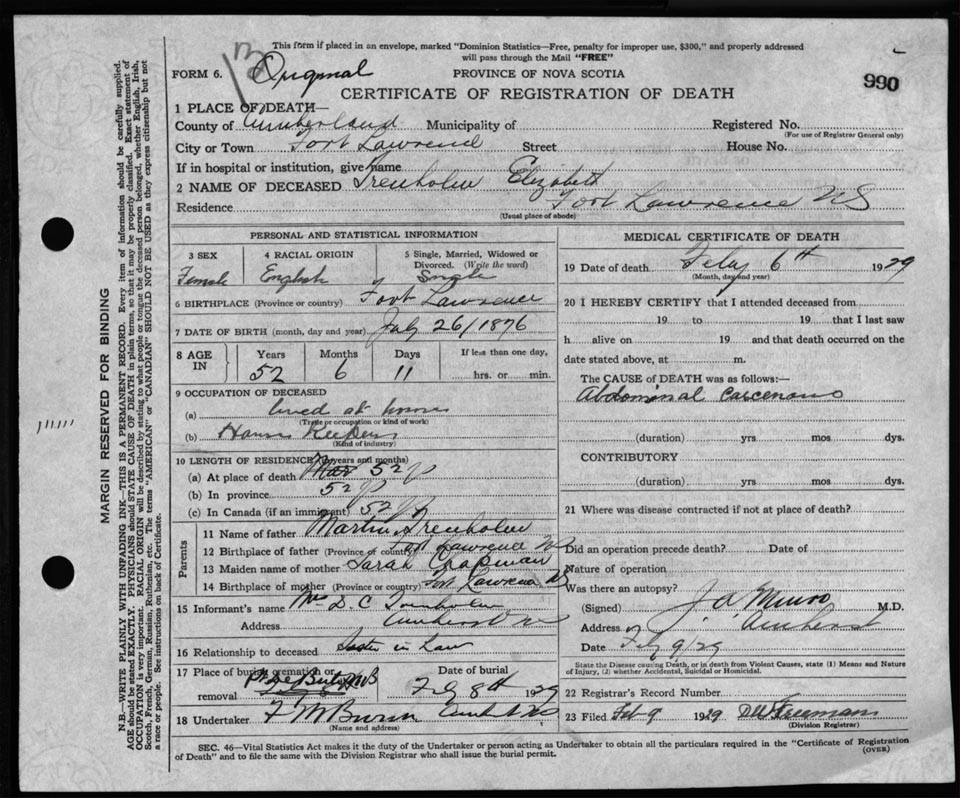 This form if placed in an envelope, marked "Dominion Statistics—Free, penalty for improper use, $300," and properly addressed
will pass through the Mail "FREE"
FORM 6. Original PROVINCE OF NOVA SCOTIA
990
CERTIFICATE OF REGISTRATION OF DEATH
1 PLACE OF DEATH—
County of Cumberland Municipality of Registered No.
(For use of Registrar General only)
City or Town Fort Lawrence Street House No.
If in hospital or institution, give name
2 NAME OF DECEASED Trenholm Elizabeth
Residence Fort Lawrence NS
(Usual place of abode)
MARGIN RESERVED FOR BINDING
N.B.—WRITE PLAINLY WITH UNFADING INK—THIS IS A PERMANENT RECORD. Every item of information should be carefully supplied.
AGE should be stated EXACTLY. PHYSICIANS should STATE CAUSE OF DEATH in plain terms, so that it may be properly classified. Exact statement of
OCCUPATION is very important. RACIAL ORIGIN will be described by stating to what people or tongue the deceased person belonged, whether English, Irish,
Scotch, French, German, Russian, Ruthenian, etc. The terms "AMERICAN" or "CANADIAN" SHOULD NOT BE USED as they express citizenship but not
a race or people. See instructions on back of Certificate.
PERSONAL AND STATISTICAL INFORMATION
3 SEX 4 RACIAL ORIGIN 5 Single, Married, Widowed or
Divorced. (Write the word)
Female English Single
6 BIRTHPLACE (Province or country) Fort Lawrence
7 DATE OF BIRTH (month, day and year) July 26/1876
8 AGE IN Years Months Days If less than one day,
52 6 11 hrs. or min.
9 OCCUPATION OF DECEASED
(a) lived at home
(Trade or occupation or kind of work)
(b) House Keeper
(Kind of industry)
10 LENGTH OF RESIDENCE (in years and months)
(a) At place of death 52 y
(b) In province 52 y
(c) In Canada (if an immigrant) 52 y
Parents
11 Name of father Martin Trenholm
12 Birthplace of father (Province or country) Fort Lawrence NS
13 Maiden name of mother Sarah Chapman
14 Birthplace of mother (Province or country) Fort Lawrence NS
15 Informant's name Mrs D. C Trenholm
Address Amherst NS
16 Relationship to deceased Sister in Law
17 Place of burial, cremation or Date of burial
removal Feb 8th 1929
18 Undertaker Amherst NS
(Name and address)
MEDICAL CERTIFICATE OF DEATH
19 Date of death Feby 6th 1929
(Month, day and year)
20 I HEREBY CERTIFY that I attended deceased from
19 to 19 that I last saw
h alive on 19 and that death occurred on the
date stated above, at m.
The CAUSE OF DEATH was as follows:—
Abdominal Carcenano
(duration) yrs mos dys.
CONTRIBUTORY
(duration) yrs mos dys.
21 Where was disease contracted if not at place of death?
Did an operation precede death? Date of
Nature of operation
Was there an autopsy?
(Signed) J. A. Munro M.D.
Address Amherst
Date Feby 9/29
State the Disease causing Death, or in death from Violent Causes, state (1) Means and Nature
of Injury, (2) whether Accidental, Suicidal or Homicidal.
22 Registrar's Record Number
23 Filed Feb 9 1929 D W Freeman
(Division Registrar)
SEC. 46—Vital Statistics Act makes it the duty of the Undertaker or person acting as Undertaker to obtain all the particulars required in the "Certificate of Registration
of Death" and to file the same with the Division Registrar who shall issue the burial permit. (OVER)